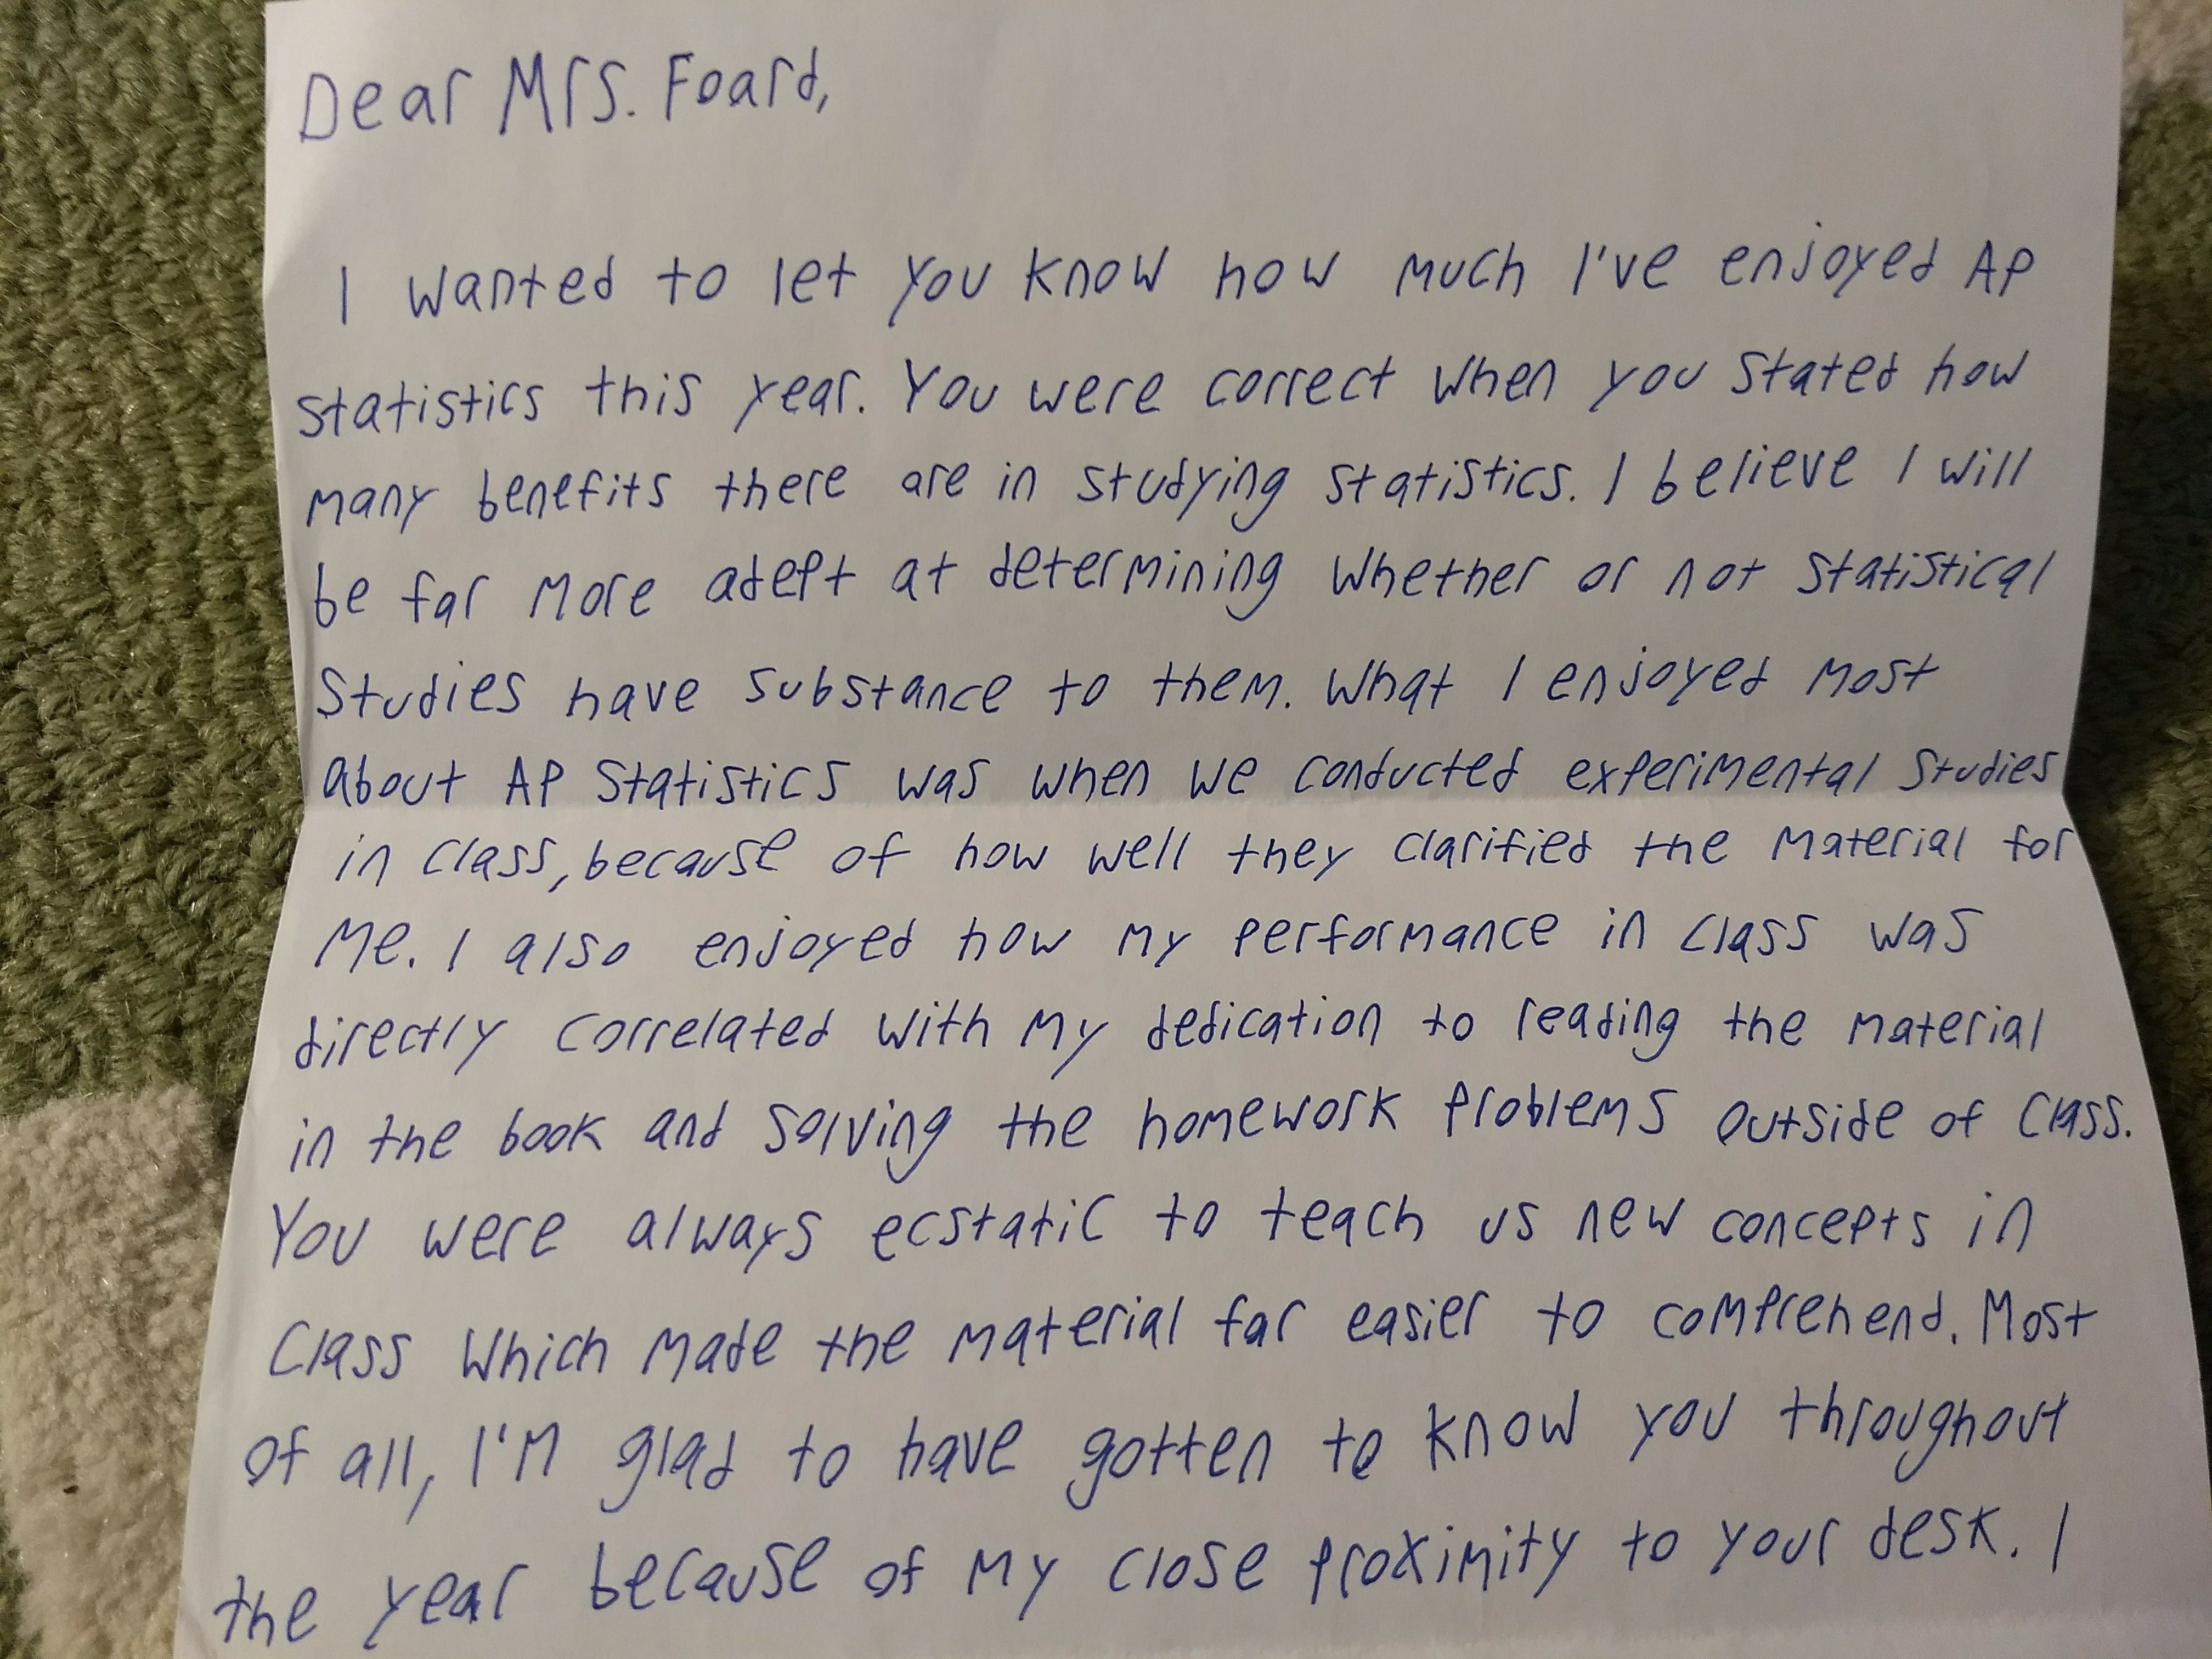 Dear Mrs. Foard,
I wanted to let you know how much I've enjoyed AP
statistics this year. You were correct when you stated how
many benefits there are in studying statistics. I believe I will
be far more adept at determining whether or not statistical
studies have substance to them. What I enjoyed most
about AP Statistics was when we conducted experimental studies
in class, because of how well they clarified the material for
me. I also enjoyed how my performance in class was
directly correlated with my dedication to reading the material
in the book and solving the homework problems outside of class.
You were always ecstatic to teach us new concepts in
class which made the material far easier to comprehend. Most
of all, I'm glad to have gotten to know you throughout
the year because of my close proximity to your desk. I